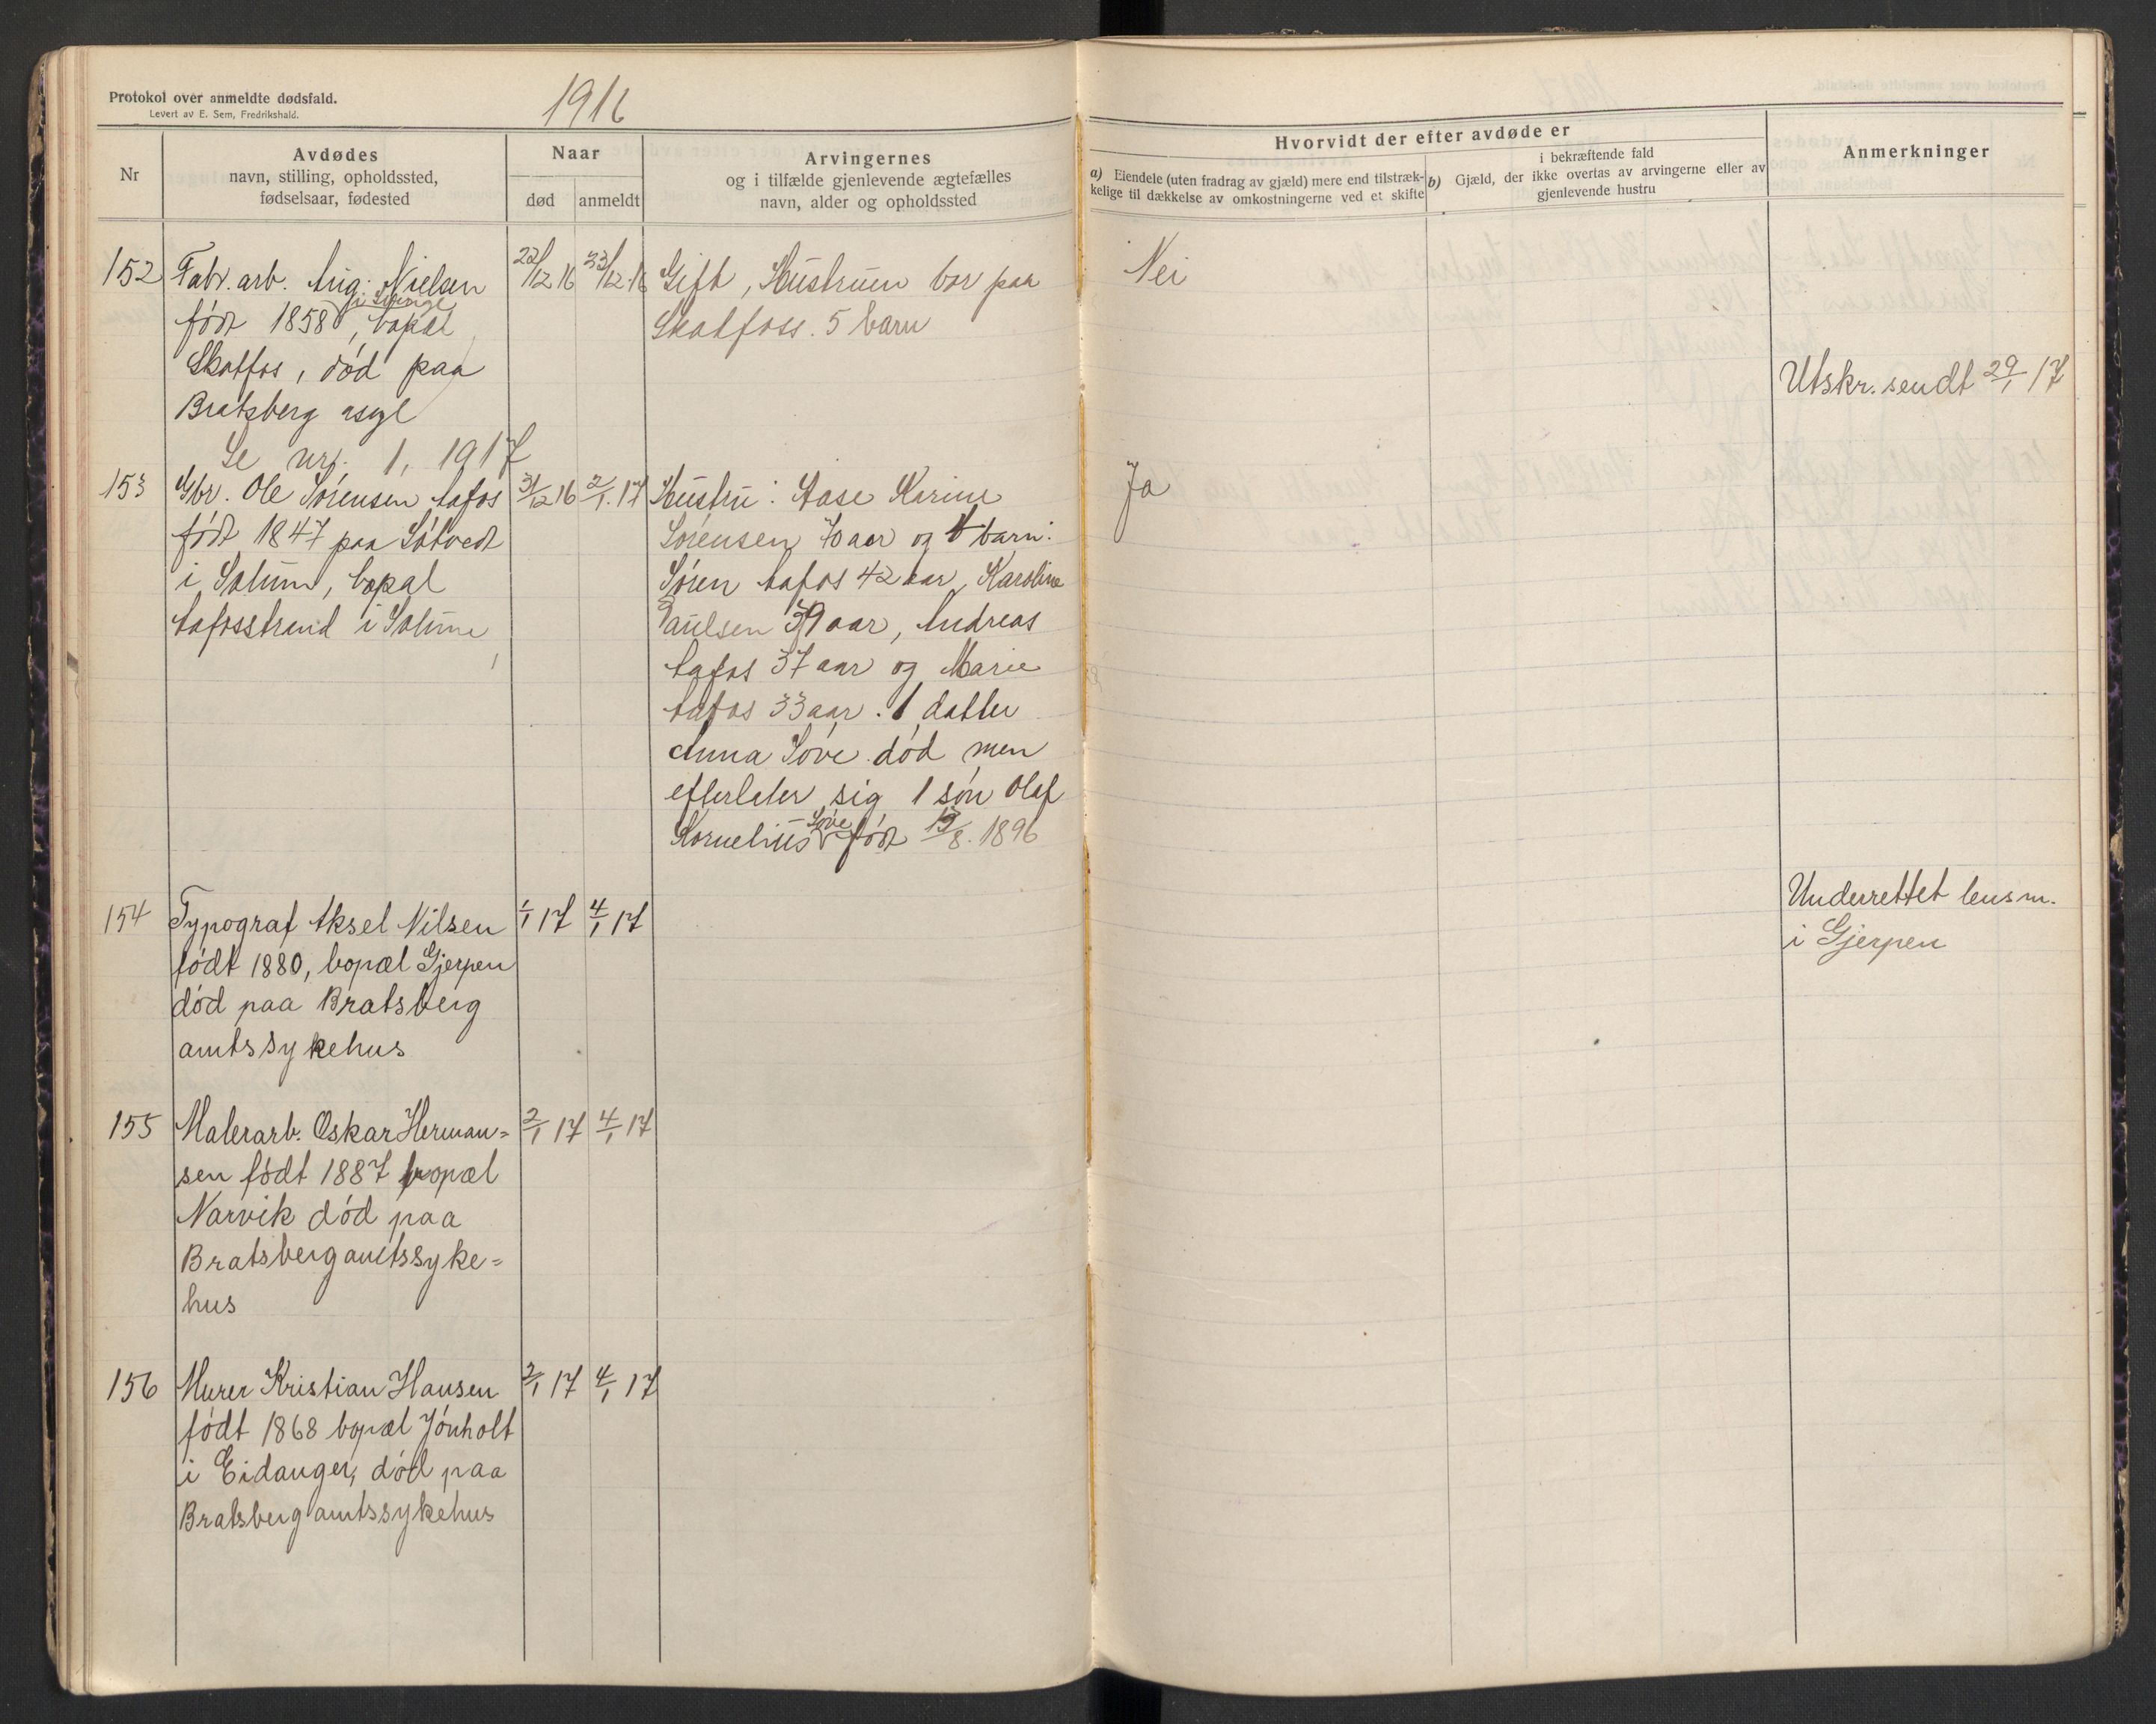 Protokol over anmeldte dødsfald.
Levert av E. Sem, Fredrikshald.
1916
Nr
Avdødes
navn, stilling, opholdssted,
fødselsaar, fødested
Naar
død
anmeldt
Arvingernes
og i tilfælde gjenlevende ægtefælles
navn, alder og opholdssted
Hvorvidt der efter avdøde er
a) Eiendele (uten fradrag av gjæld) mere end tilstræk-
kelige til dækkelse av omkostningerne ved et skifte
i bekræftende fald
b) Gjæld, der ikke overtas av arvingerne eller av
gjenlevende hustru
Anmerkninger
152 Fabr. arb. Aug. Nielsen 22/12 16 23/12.16 Gift, Hustruen bor paa Nei
i Sverige
født 1858, bopæl Skotfoss. 5 barn
Skotfos, død paa Utskr. sendt 29/1 17
Bratsberg asyl
Se nr. 1, 1917
153 Gbr. Ole Sørensen Aafos 31/12 16 2/1.17 Hustru: Aase Karine Ja
født 1847 paa Søtvedt Sørensen 70 aar og 4 barn:
i Solum, bopæl Søren Aafos 42 aar, Karoline
Aafosstrand i Solum Paulsen 39 aar, Andreas
Aafos 37 aar og Marie
Aafos 33 aar. 1 datter
Anna Søve død men
efterlater sig 1 søn Olaf
Kornelius Søve født 13/8.1896
154 Typograf Aksel Nilsen 1/1 17 4/1 17 Underrettet lensm.
født 1880, bopæl Gjerpen i Gjerpen
død paa Bratsberg
amtssykehus
155 Malerarb. Oskar Herman= 2/1 17 4/1 17
sen født 1887 bopæl
Narvik død paa
Bratsberg amtssyke=
hus
156 Murer Kristian Hansen 2/1 17 4/1 17
født 1868 bopæl Jønholt
i Eidanger, død paa
Bratsberg amtssykehus